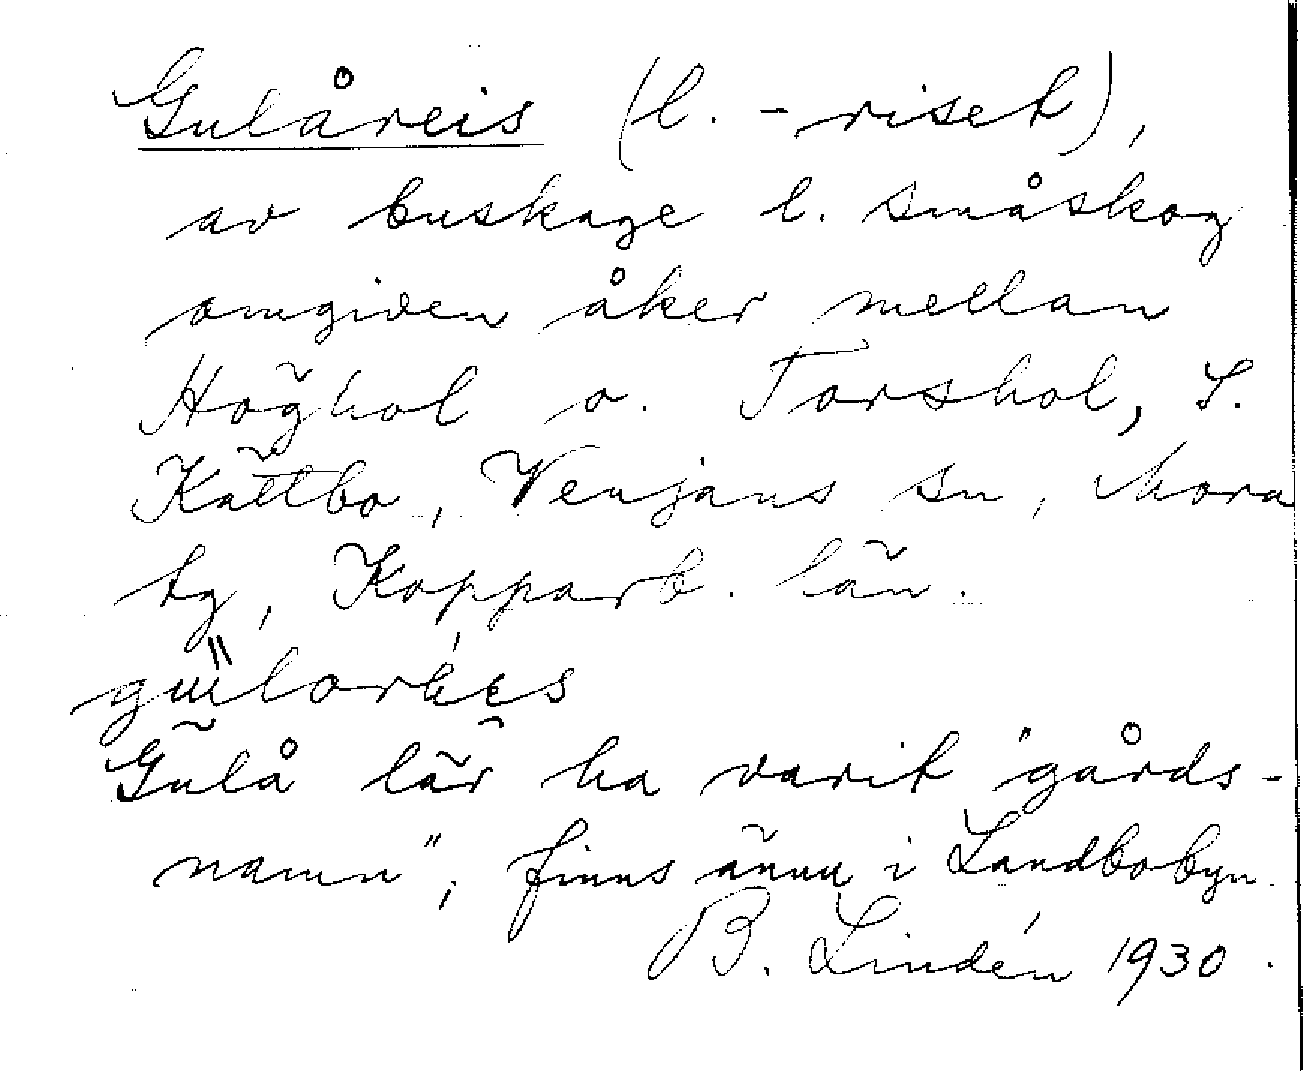 Gulåreis (l. -riset),
av buskage l. småskog
omgiven åker mellan
Höghol o. Torshol, S.
Kättbo, Venjans sn, Mora
tg, Kopparb. län.
Gulå lär ha varit "gårds-
namn", finns ännu i Landbobyn.
B. Lindén 1930.